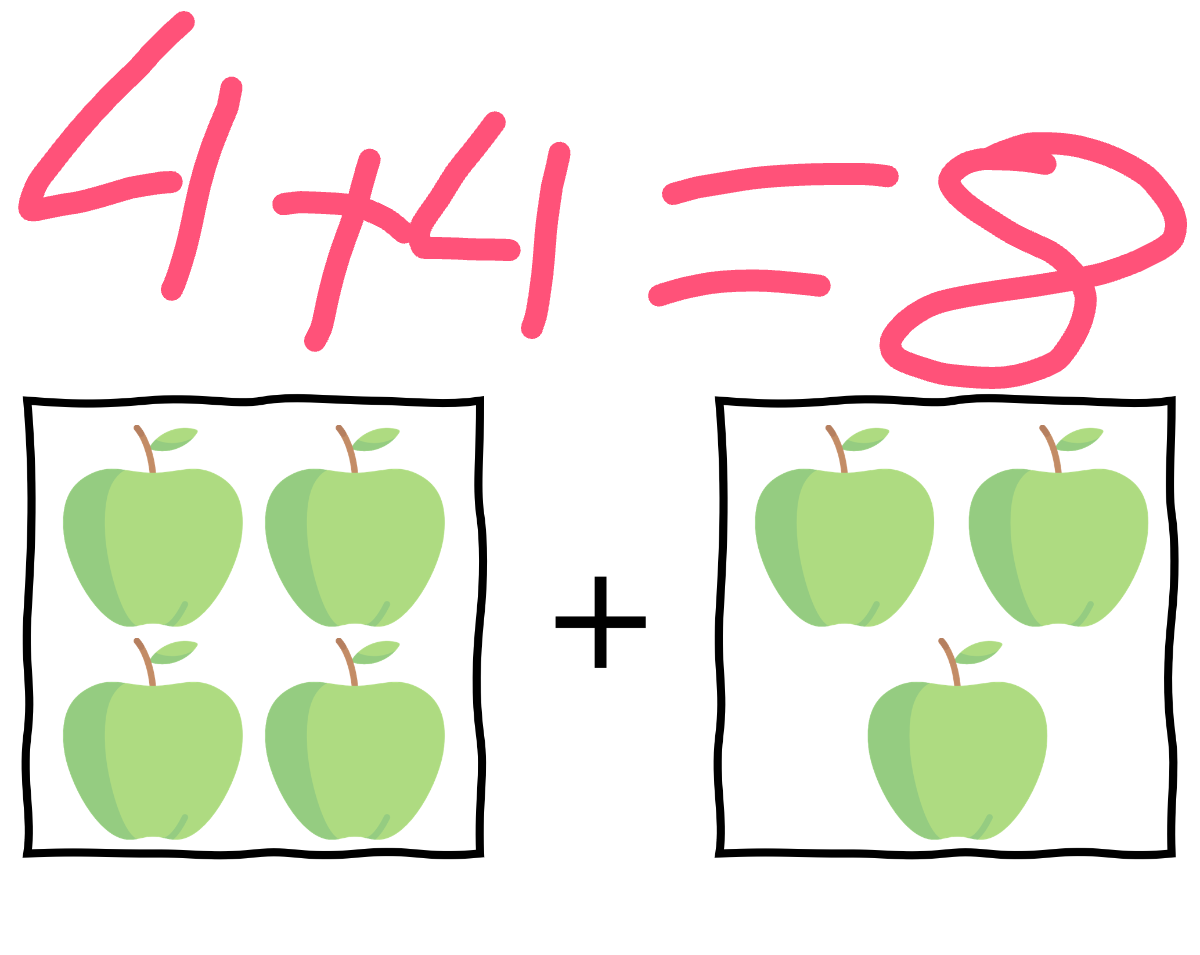 4+4=8
+